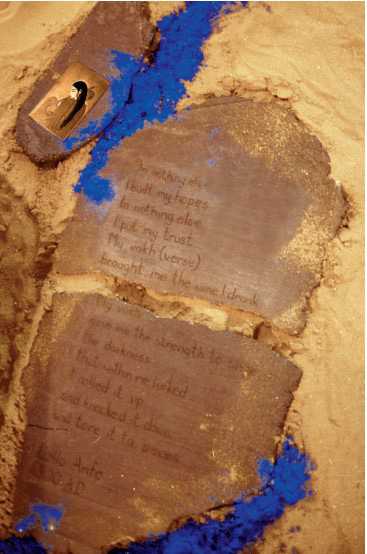 In nothing else
I built my hopes
In nothing else
I put my trust
My vakh (verse)
brought me the wine I drank
My
gave me the strength to
the darkness
that within me lurked
I rolled it up
and knocked it down
and tore it to pieces
Lalla
A.D.